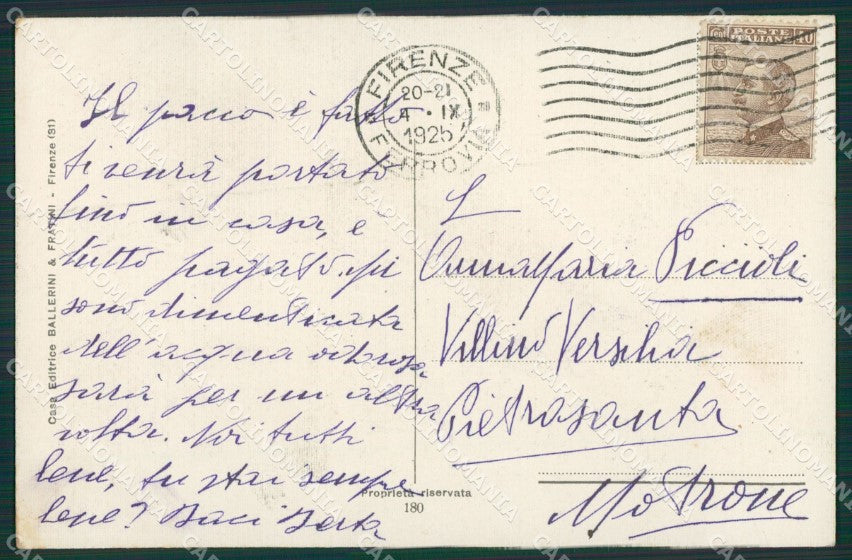 Il pacco è fatto
ti verrà portato
fino in casa, è
tutto pagato. Mi
sono dimenticata
dell'acqua odorosa
sarà per un altra
volta. Noi tutti
bene, tu stai sempre
bene? Baci Berta
Casa Editrice BALLERINI & FRATINI - Firenze (31)
FIRENZE
20-21
4 · IX
1925
FERROVIA
POSTE
ITALIANE
cent 10
Annamaria Piccioli
Villino Versilia
Pietrasanta
Motrone
Proprietà riservata
180
CARTOLINOMANIA